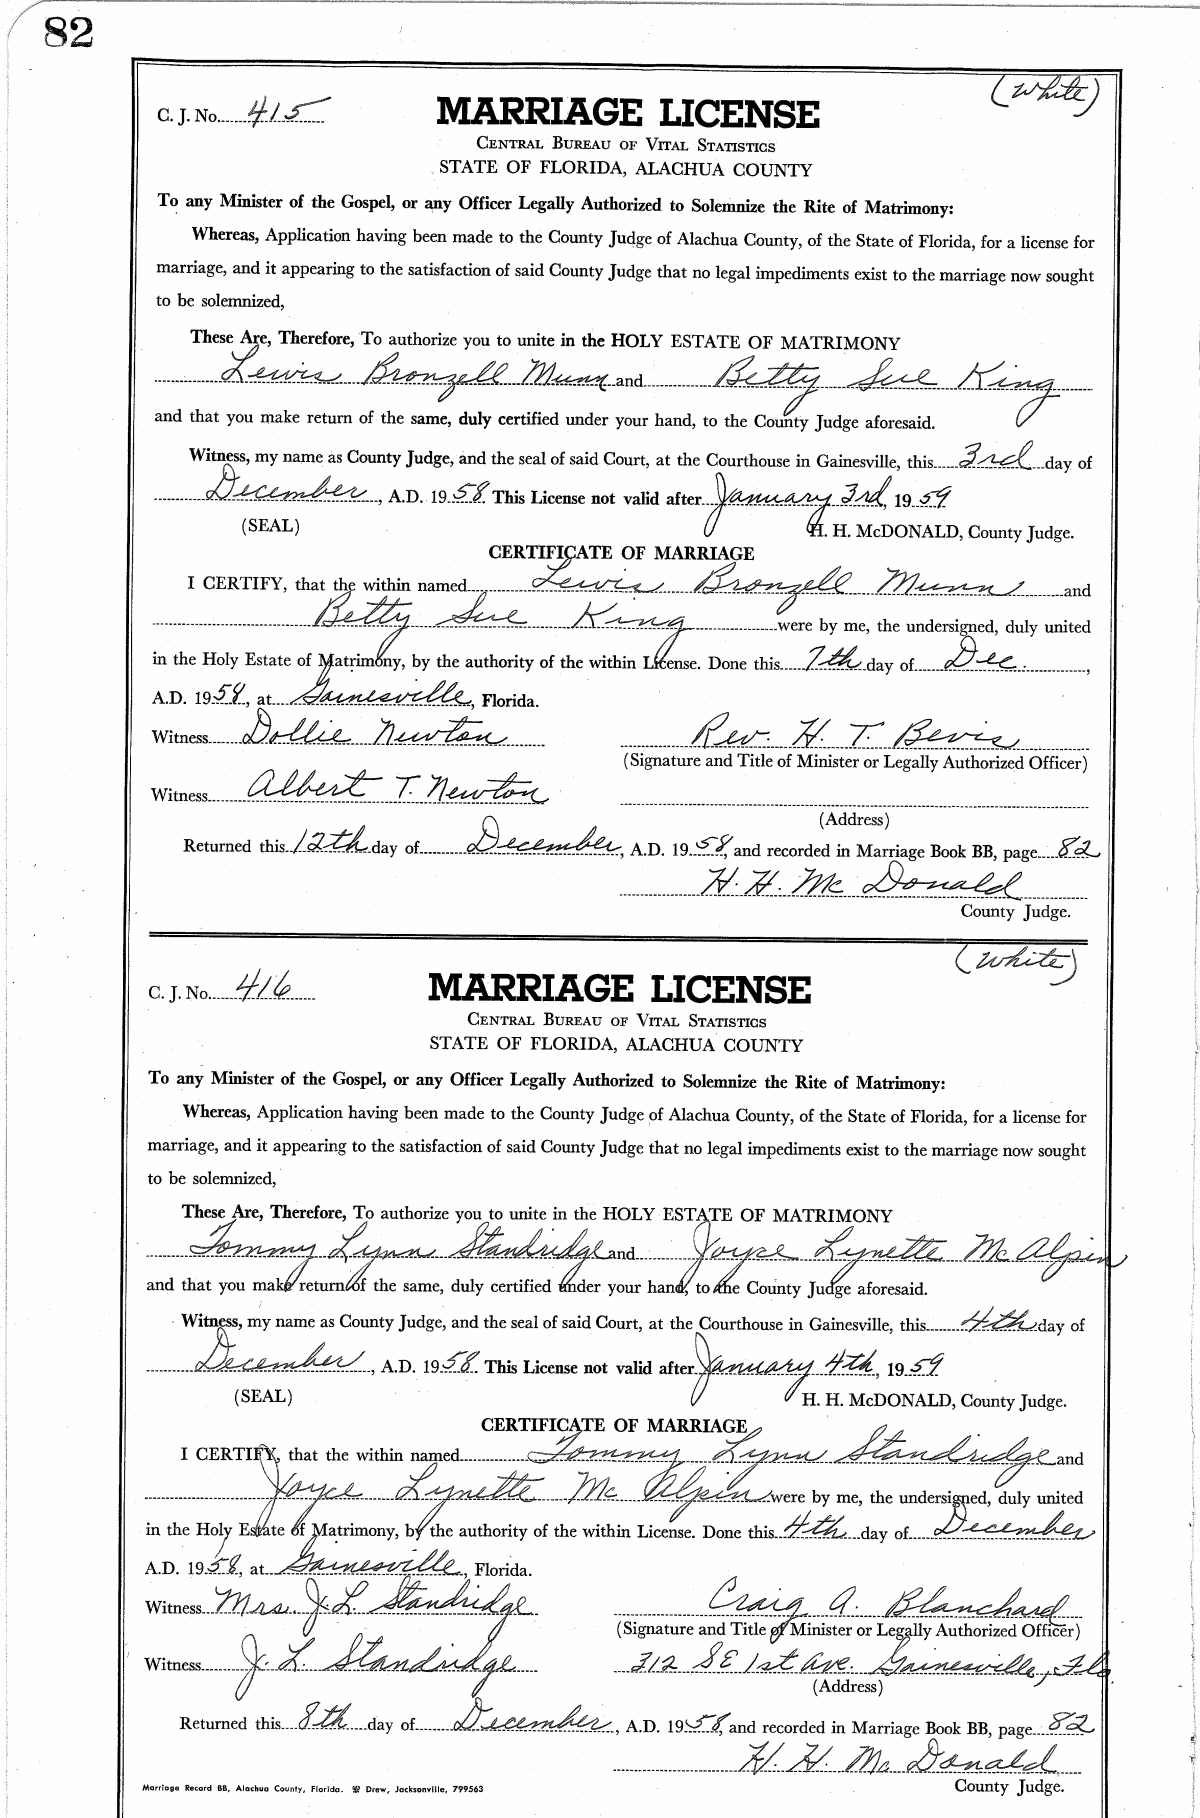 82
(White)
C. J. No. 415
MARRIAGE LICENSE
CENTRAL BUREAU OF VITAL STATISTICS
STATE OF FLORIDA, ALACHUA COUNTY
To any Minister of the Gospel, or any Officer Legally Authorized to Solemnize the Rite of Matrimony:
Whereas, Application having been made to the County Judge of Alachua County, of the State of Florida, for a license for
marriage, and it appearing to the satisfaction of said County Judge that no legal impediments exist to the marriage now sought
to be solemnized,
These Are, Therefore, To authorize you to unite in the HOLY ESTATE OF MATRIMONY
Lewis Bronzell Munn and Betty Sue King
and that you make return of the same, duly certified under your hand, to the County Judge aforesaid.
Witness, my name as County Judge, and the seal of said Court, at the Courthouse in Gainesville, this 3rd day of
December, A.D. 1958. This License not valid after January 3rd, 1959
(SEAL) H. H. McDONALD, County Judge.
CERTIFICATE OF MARRIAGE
I CERTIFY, that the within named Lewis Bronzell Munn and
Betty Sue King were by me, the undersigned, duly united
in the Holy Estate of Matrimony, by the authority of the within License. Done this 7th day of Dec.,
A.D. 1958, at Gainesville, Florida.
Witness Dollie Newton Rev. H. T. Bevis
(Signature and Title of Minister or Legally Authorized Officer)
Witness Albert T. Newton
(Address)
Returned this 12th day of December, A.D. 1958, and recorded in Marriage Book BB, page 82
H. H. Mc Donald
County Judge.
(White)
C. J. No. 416
MARRIAGE LICENSE
CENTRAL BUREAU OF VITAL STATISTICS
STATE OF FLORIDA, ALACHUA COUNTY
To any Minister of the Gospel, or any Officer Legally Authorized to Solemnize the Rite of Matrimony:
Whereas, Application having been made to the County Judge of Alachua County, of the State of Florida, for a license for
marriage, and it appearing to the satisfaction of said County Judge that no legal impediments exist to the marriage now sought
to be solemnized,
These Are, Therefore, To authorize you to unite in the HOLY ESTATE OF MATRIMONY
Tommy Lynn Standridge and Joyce Lynette Mc Alpin
and that you make return of the same, duly certified under your hand, to the County Judge aforesaid.
Witness, my name as County Judge, and the seal of said Court, at the Courthouse in Gainesville, this 4th day of
December, A.D. 1958. This License not valid after January 4th, 1959
(SEAL) H. H. McDONALD, County Judge.
CERTIFICATE OF MARRIAGE
I CERTIFY, that the within named Tommy Lynn Standridge and
Joyce Lynette Mc Alpin were by me, the undersigned, duly united
in the Holy Estate of Matrimony, by the authority of the within License. Done this 4th day of December
A.D. 1958, at Gainesville, Florida.
Witness Mrs. J. L. Standridge Craig A. Blanchard
(Signature and Title of Minister or Legally Authorized Officer)
Witness J. L. Standridge 312 SE 1st Ave. Gainesville, Fla.
(Address)
Returned this 8th day of December, A.D. 1958, and recorded in Marriage Book BB, page 82
H. H. Mc Donald
County Judge.
Marriage Record BB, Alachua County, Florida. Drew, Jacksonville, 799563